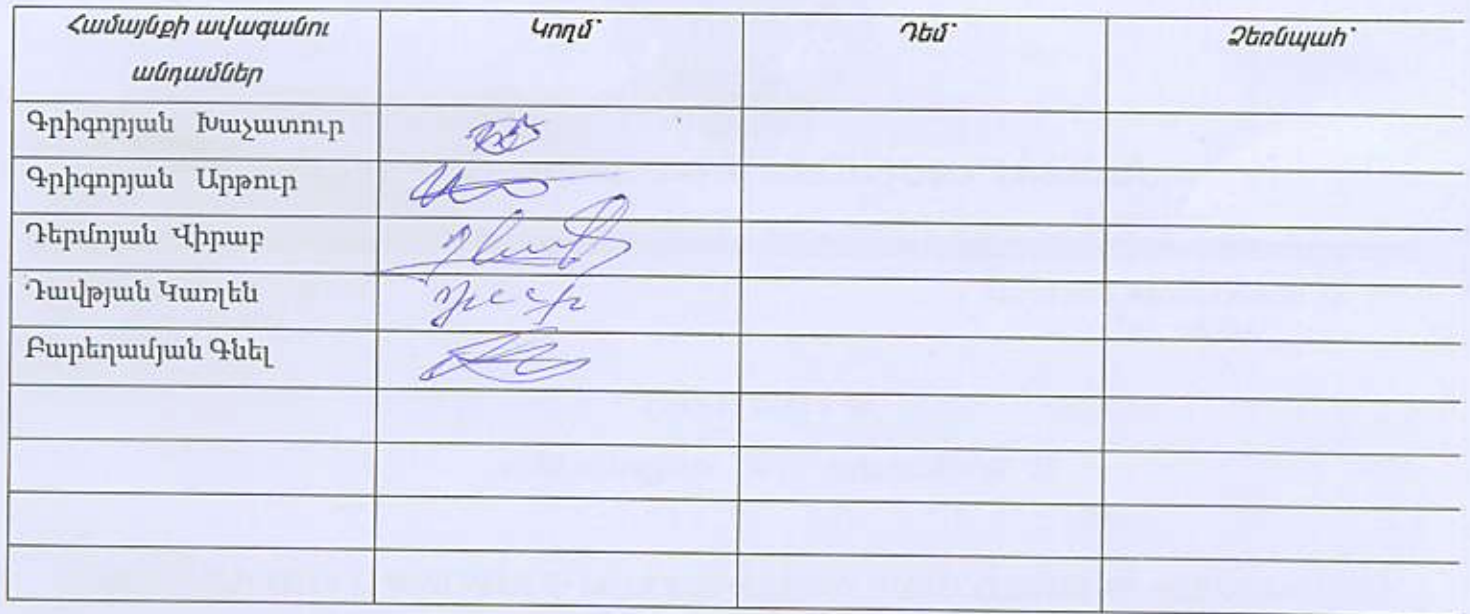 Համայնքի ավագանու
անդամներ
Կողմ՝
Դեմ՝
Ձեռնպահ՝
Գրիգորյան Խաչատուր
Գրիգորյան Արթուր
Դերմոյան Վիրաբ
Դավթյան Կառլեն
Բարեղամյան Գնել